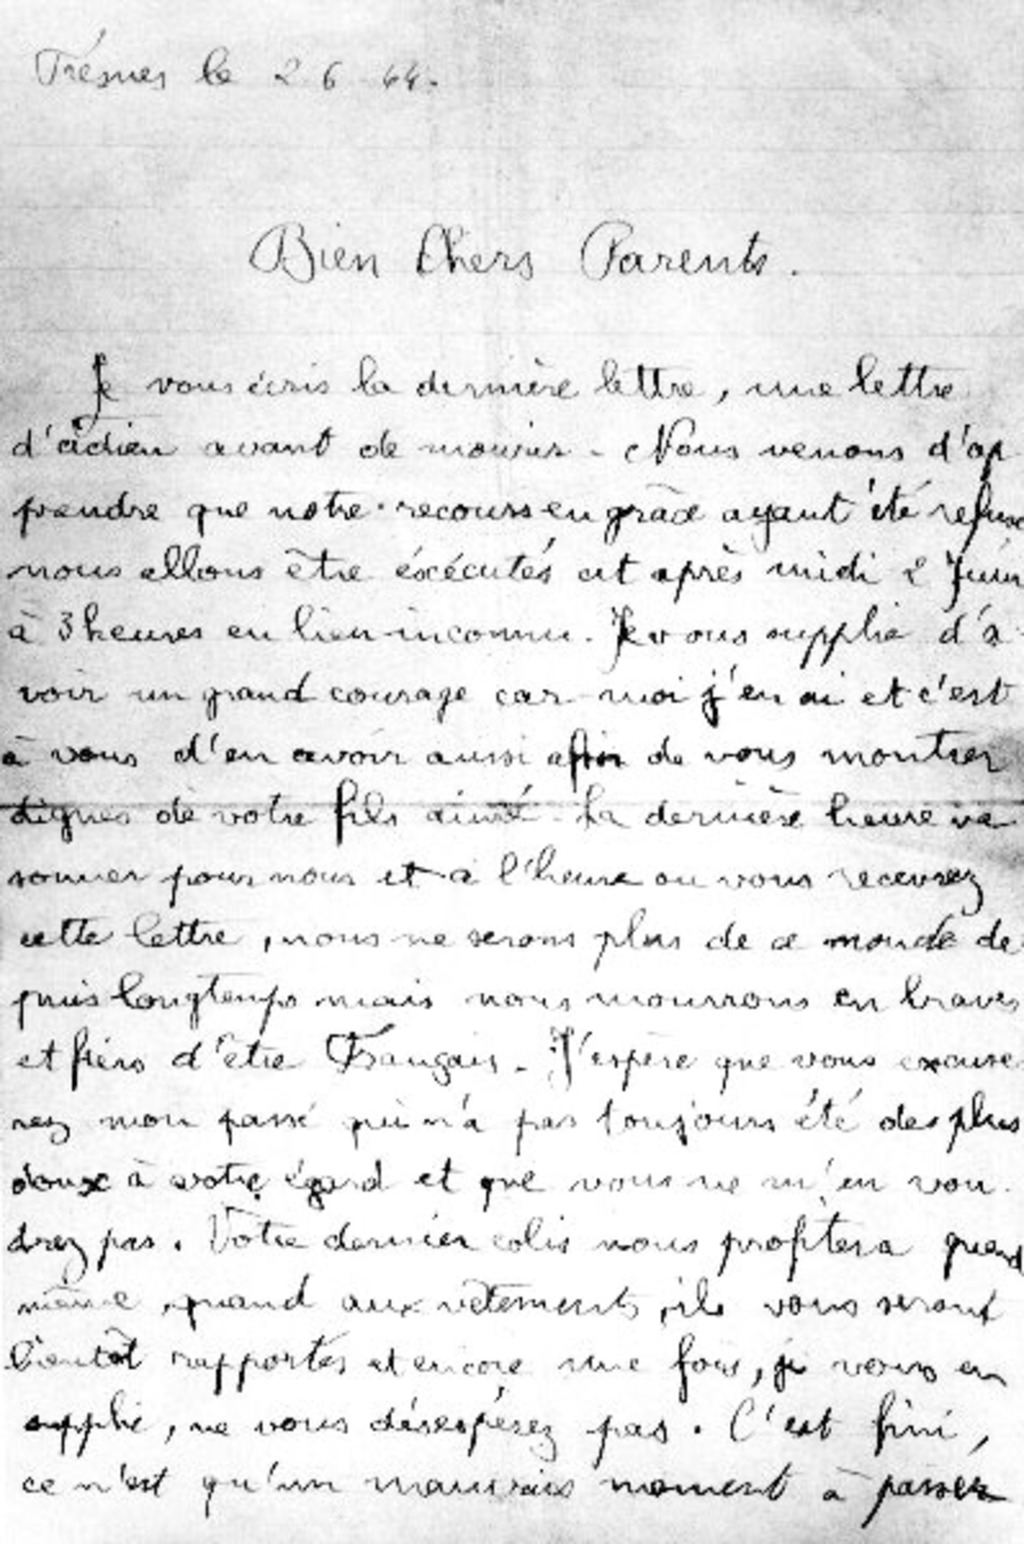 Frésnes le 2 6 44.
Bien Chers Parents.
Je vous écris la dernière lettre, une lettre
d'adieu avant de mourir. Nous venons d'ap
prendre que notre recours en grâce ayant été refusé
nous allons être éxécutés cet après midi 2 Juin
à 3 heures en lieu inconnu. Je vous supplie d'a
voir un grand courage car moi j'en ai et c'est
à vous d'en avoir aussi afin de vous montrer
dignes de votre fils aimé. La dernière heure va
sonner pour nous et à l'heure ou vous recevrez
cette lettre, nous ne serons plus de ce monde de
puis longtemps mais nous mourrons en braves
et fiers d'être Français. J'espère que vous excuse
rez mon passé qui n'a pas toujours été des plus
doux à votre égard et que vous ne m'en vou
drez pas. Votre dernier colis nous profitera quand
même, quand aux vêtements, ils vous seront
bientôt rapportés et encore une fois, je vous en
supplie, ne vous désespérez pas. C'est fini,
ce n'est qu'un mauvais moment à passer